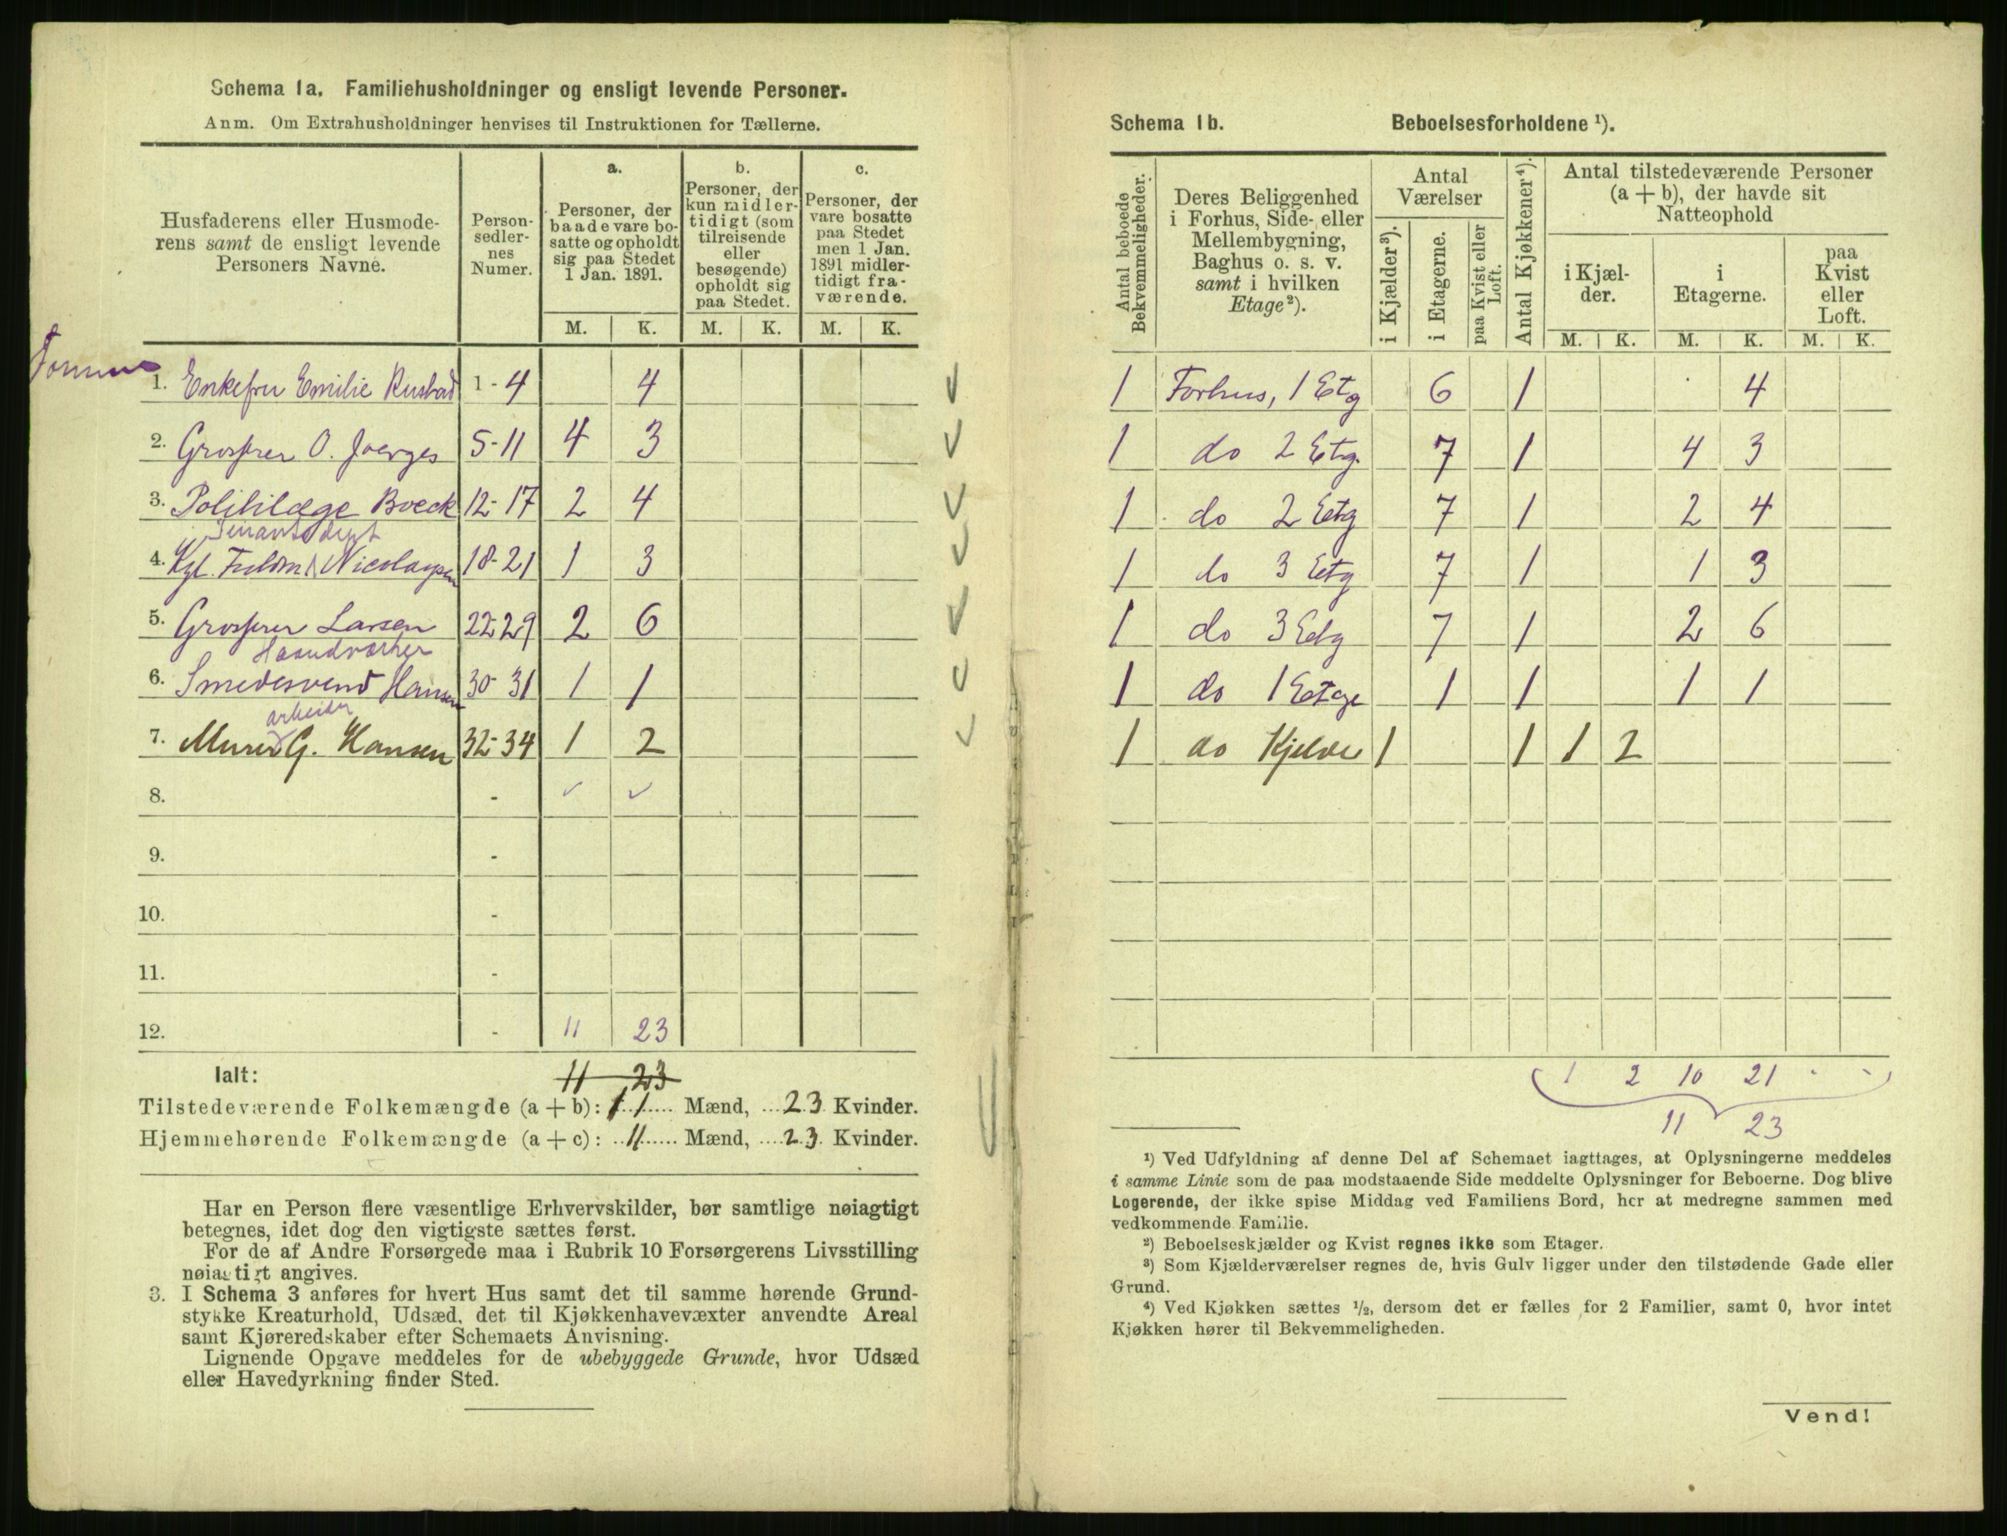 Schema 1a. Familiehusholdninger og ensligt levende Personer.
Anm. Om Extrahusholdninger henvises til Instruktionen for Tællerne.
Husfaderens eller Husmode-
rens samt de ensligt levende
Personers Navne.
Person-
sedler-
nes
Numer.
a.
Personer, der
baade vare bo-
satte og opholdt
sig paa Stedet
1 Jan. 1891.
b.
Personer, der
kun midler-
tidigt (som
tilreisende
eller
besøgende)
opholdt sig
paa Stedet.
c.
Personer, der
vare bosatte
paa Stedet
men 1 Jan.
1891 midler-
tidigt fra-
værende.
M. K. M. K. M. K.
1. Enkefru Emilie Rustad 1-4 4
2. Grosserer O. Joerges 5-11 4 3
3. Politilæge Boeck 12-17 2 4
4. Kgl. Fuldm. Nicolaysen 18-21 1 3
5. Grosserer Larsen 22-29 2 6
Haandværker
6. Smedesvend Hansen 30-31 1 1
arbeider
7. Murer G. Hansen 32-34 1 2
8. -
9. -
10. -
11. -
12. - 11 23
Ialt: 11 23
Tilstedeværende Folkemængde (a + b): 11 Mænd, 23 Kvinder.
Hjemmehørende Folkemængde (a + c): 11 Mænd, 23 Kvinder.
Har en Person flere væsentlige Erhvervskilder, bør samtlige nøiagtigt
betegnes, idet dog den vigtigste sættes først.
For de af Andre Forsørgede maa i Rubrik 10 Forsørgerens Livsstilling
nøiagtigt angives.
3. I Schema 3 anføres for hvert Hus samt det til samme hørende Grund-
stykke Kreaturhold, Udsæd, det til Kjøkkenhavevæxter anvendte Areal
samt Kjøreredskaber efter Schemaets Anvisning.
Lignende Opgave meddeles for de ubebyggede Grunde, hvor Udsæd
eller Havedyrkning finder Sted.
Schema 1b. Beboelsesforholdene ¹).
Antal beboede
Bekvemmeligheder.
Deres Beliggenhed
i Forhus, Side- eller
Mellembygning,
Baghus o. s. v.
samt i hvilken
Etage²).
Antal
Værelser
i Kjælder³).
i Etagerne.
paa Kvist eller
Loft.
Antal Kjøkkener⁴).
Antal tilstedeværende Personer
(a + b), der havde sit
Natteophold
i Kjæl-
der.
i
Etagerne.
paa
Kvist
eller
Loft.
M. K. M. K. M. K.
1 Forhus, 1 Etg 6 1 4
1 do 2 Etg. 7 1 4 3
1 do 2 Etg 7 1 2 4
1 do 3 Etg 7 1 1 3
1 do 3 Etg 7 1 2 6
1 do 1 Etage 1 1 1 1
1 do Kjelder 1 1 1 2
1 2 10 21
11 23
¹) Ved Udfyldning af denne Del af Schemaet iagttages, at Oplysningerne meddeles
i samme Linie som de paa modstaaende Side meddelte Oplysninger for Beboerne. Dog blive
Logerende, der ikke spise Middag ved Familiens Bord, her at medregne sammen med
vedkommende Familie.
²) Beboelseskjælder og Kvist regnes ikke som Etager.
³) Som Kjælderværelser regnes de, hvis Gulv ligger under den tilstødende Gade eller
Grund.
⁴) Ved Kjøkken sættes ½, dersom det er fælles for 2 Familier, samt 0, hvor intet
Kjøkken hører til Bekvemmeligheden.
Vend!